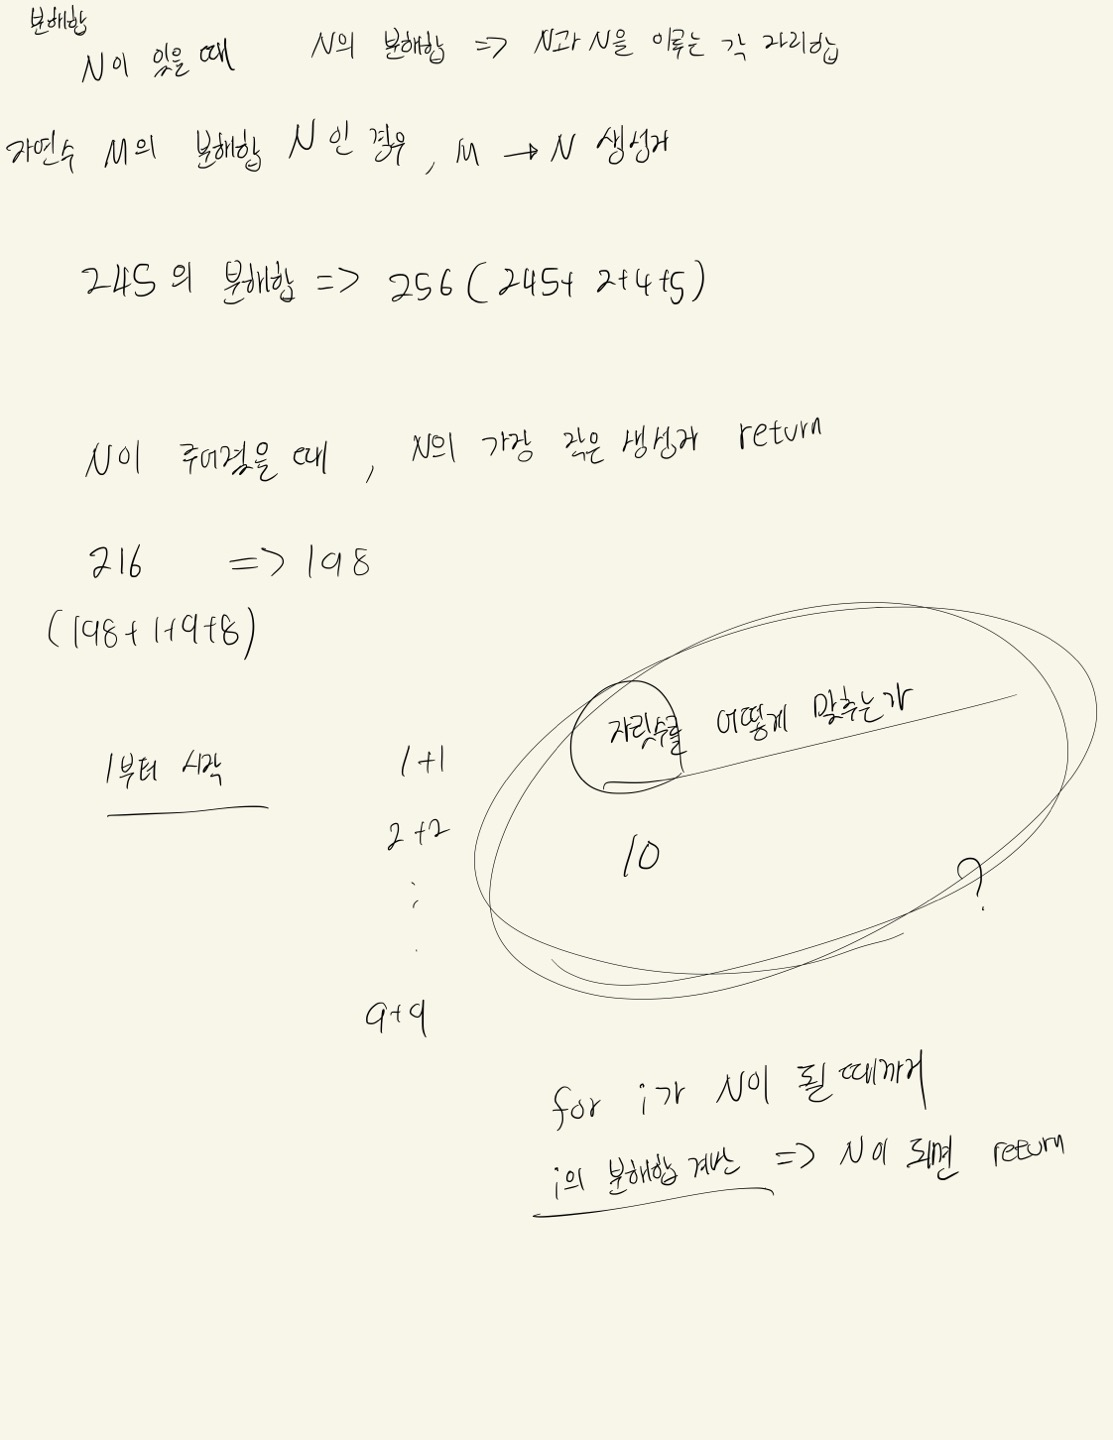 분해합
N이 있을 때 N의 분해합 => N과 N을 이루는 각 자리합
자연수 M의 분해합 N인 경우, M → N 생성자
245의 분해합 => 256(245+ 2+4+5)
N이 주어졌을 때, N의 가장 작은 생성자 return
216 => 198
(198+1+9+8)
자릿수를 어떻게 맞추는가
1부터 시작 1+1
2+2
10
?
:
.
9+9
for i가 N이 될 때까지
i의 분해합 계산 => N이 되면 return